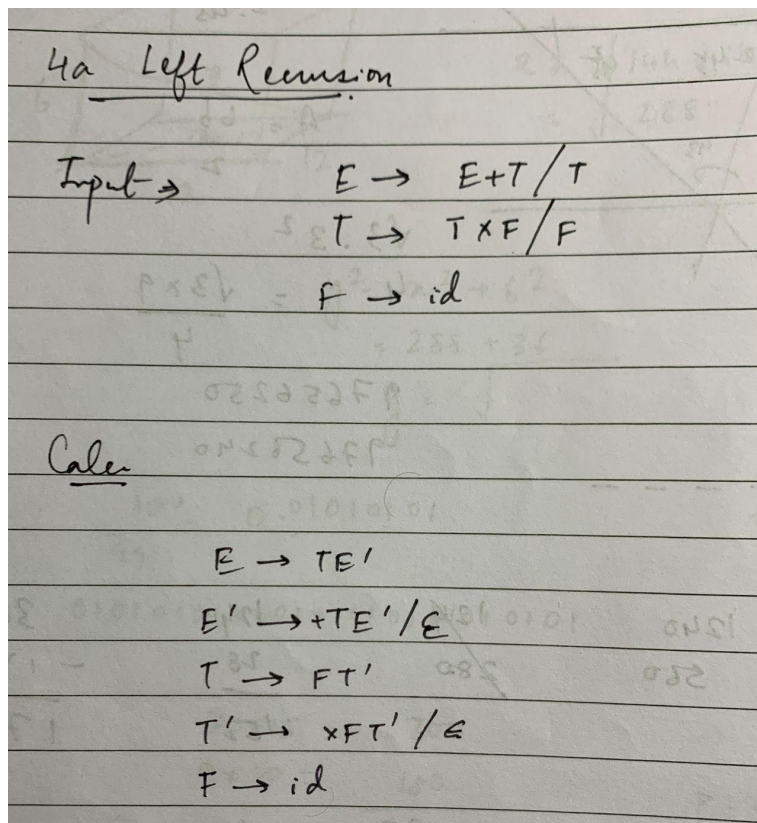 4a Left Recursion
Input → E → E+T/T
T → T×F/F
F → id
Calcu
E → TE'
E' → +TE'/ε
T → FT'
T' → ×FT'/ε
F → id